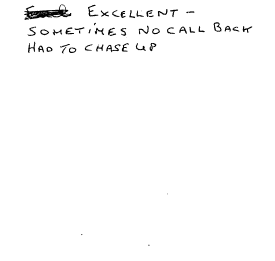 EXCELLENT -
SOMETIMES NO CALL BACK
HAD TO CHASE UP